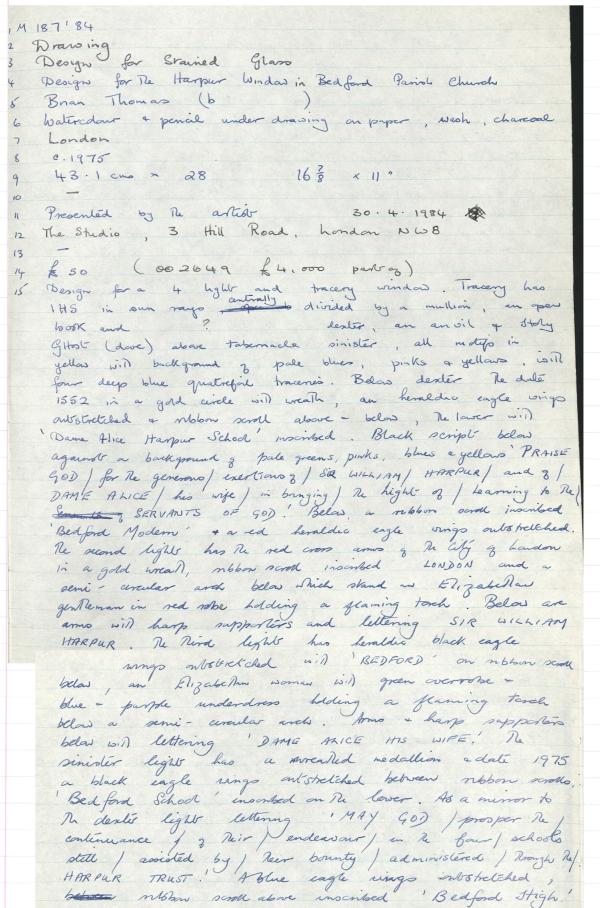 1 M 187'84
2 Drawing
3 Design for Stained Glass
4 Design for the Harpur Window in Bedford Parish Church
5 Brian Thomas (b )
6 Watercolour & pencil under drawing on paper, wash, charcoal
7 London
8 c. 1975
9 43.1 cms × 28 16 7/8 × 11"
10 —
11 Presented by the artist 30.4.1984
12 The Studio, 3 Hill Road, London NW8
13 —
14 £50 (002649 £4,000 part of)
15 Design for a 4 light and tracery window. Tracery has
IHS in sun rays centrally divided by a mullion, an open
book and ? dexter, an anvil & Holy
Ghost (dove) above tabernacle sinister, all motifs in
yellow with background of pale blues, pinks & yellows, with
four deep blue quatrefoil traceries. Below dexter the date
1552 in a gold circle with wreath, an heraldic eagle wings
outstretched & ribbon scroll above - below, the lower with
'Dame Alice Harpur School' inscribed. Black script below
against a background of pale greens, pinks, blues & yellows 'PRAISE
GOD / for the generous / exertions of / SIR WILLIAM / HARPUR / and of /
DAME ALICE / his wife / in bringing / the lights of / learning to the /
SERVANTS OF GOD'. Below, a ribbon scroll inscribed
'Bedford Modern' & a red heraldic eagle wings outstretched.
The second lights has the red cross arms of the City of London
in a gold wreath, ribbon scroll inscribed LONDON and a
semi-circular arch below which stand an Elizabethan
gentleman in red robe holding a flaming torch. Below are
arms with harp supporters and lettering SIR WILLIAM
HARPUR. The third lights has heraldic black eagle
wings outstretched with 'BEDFORD' on ribbon scroll
below, an Elizabethan woman with green overrobe &
blue-purple underdress holding a flaming torch
below a semi-circular arch. Arms & harp supporters
below with lettering 'DAME ALICE HIS WIFE'. The
sinister lights has a wreathed medallion & date 1975
a black eagle wings outstretched between ribbon scrolls,
'Bedford School' inscribed on the lower. As a mirror to
the dexter lights lettering 'MAY GOD / prosper the /
continuance / of their / endeavour / in the four / schools
still / assisted by / their bounty / administered / through the /
HARPUR TRUST.' A blue eagle wings outstretched,
ribbon scroll above inscribed 'Bedford High'